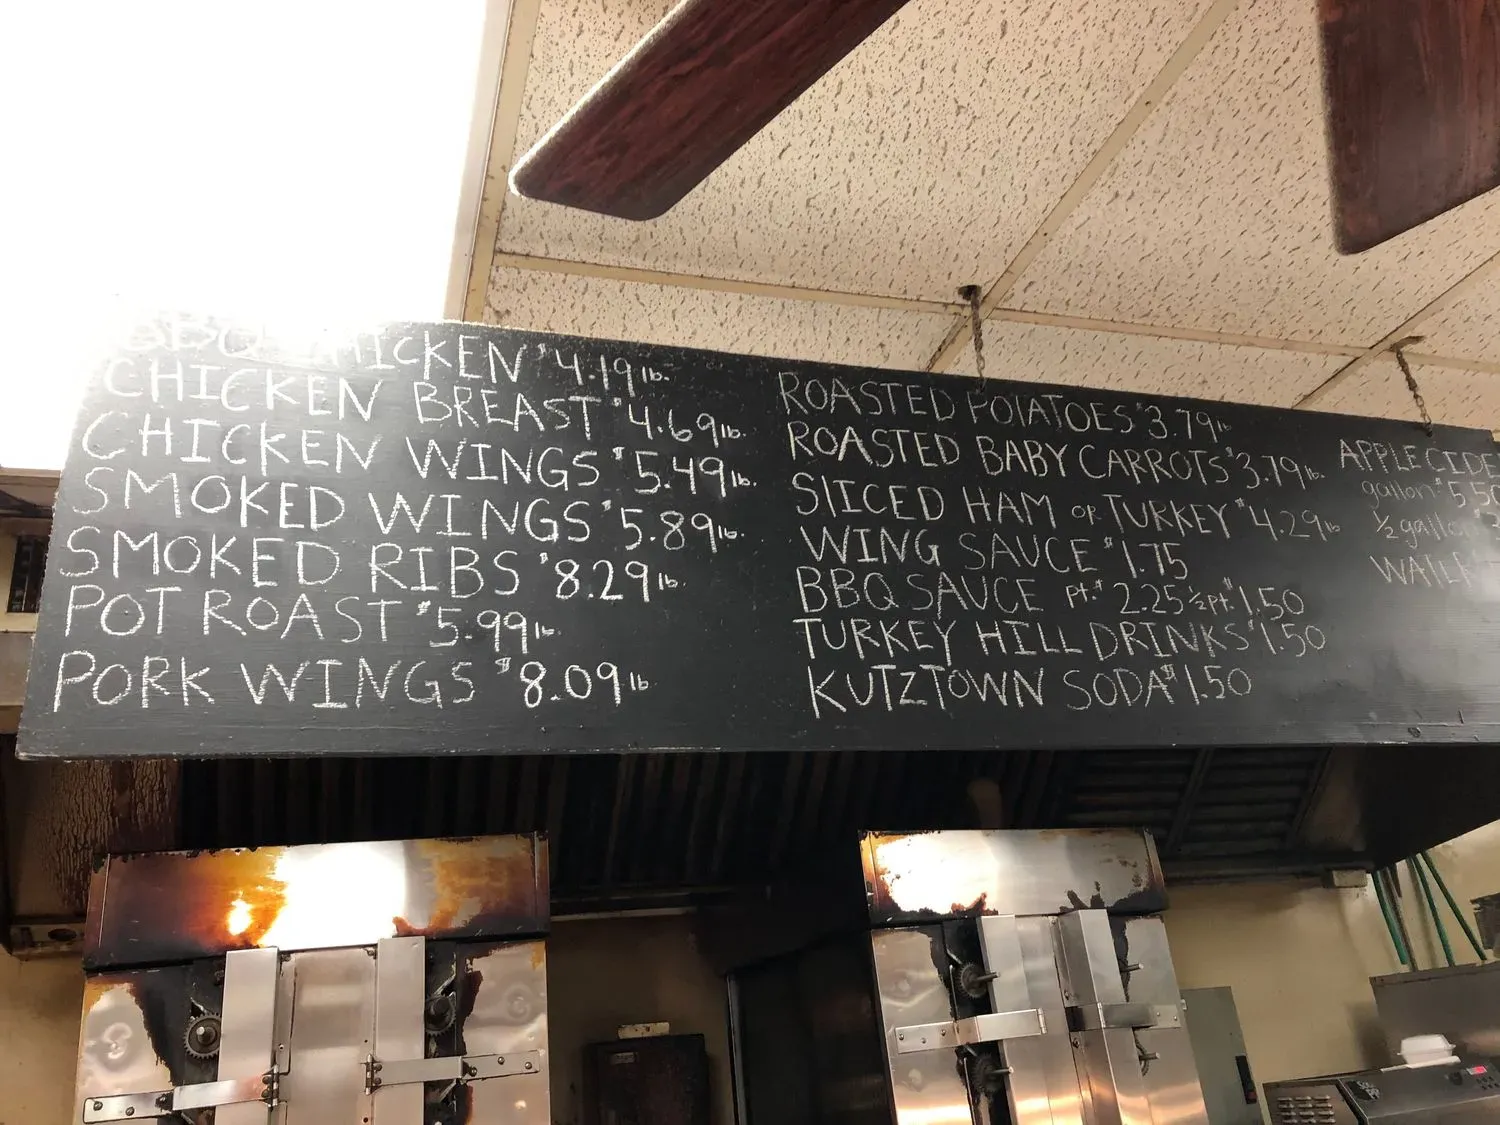 BBQ CHICKEN $4.19 lb.
CHICKEN BREAST $4.69 lb.
CHICKEN WINGS $5.49 lb.
SMOKED WINGS $5.89 lb.
SMOKED RIBS $8.29 lb.
POT ROAST $5.99 lb.
PORK WINGS $8.09 lb.
ROASTED POTATOES $3.79 lb
ROASTED BABY CARROTS $3.79 lb.
SLICED HAM OR TURKEY $4.29 lb
WING SAUCE $1.75
BBQ SAUCE pt. $2.25 ½ pt. $1.50
TURKEY HILL DRINKS $1.50
KUTZTOWN SODA $1.50
APPLE CIDE
gallon $5.50
½ gallo
WATER